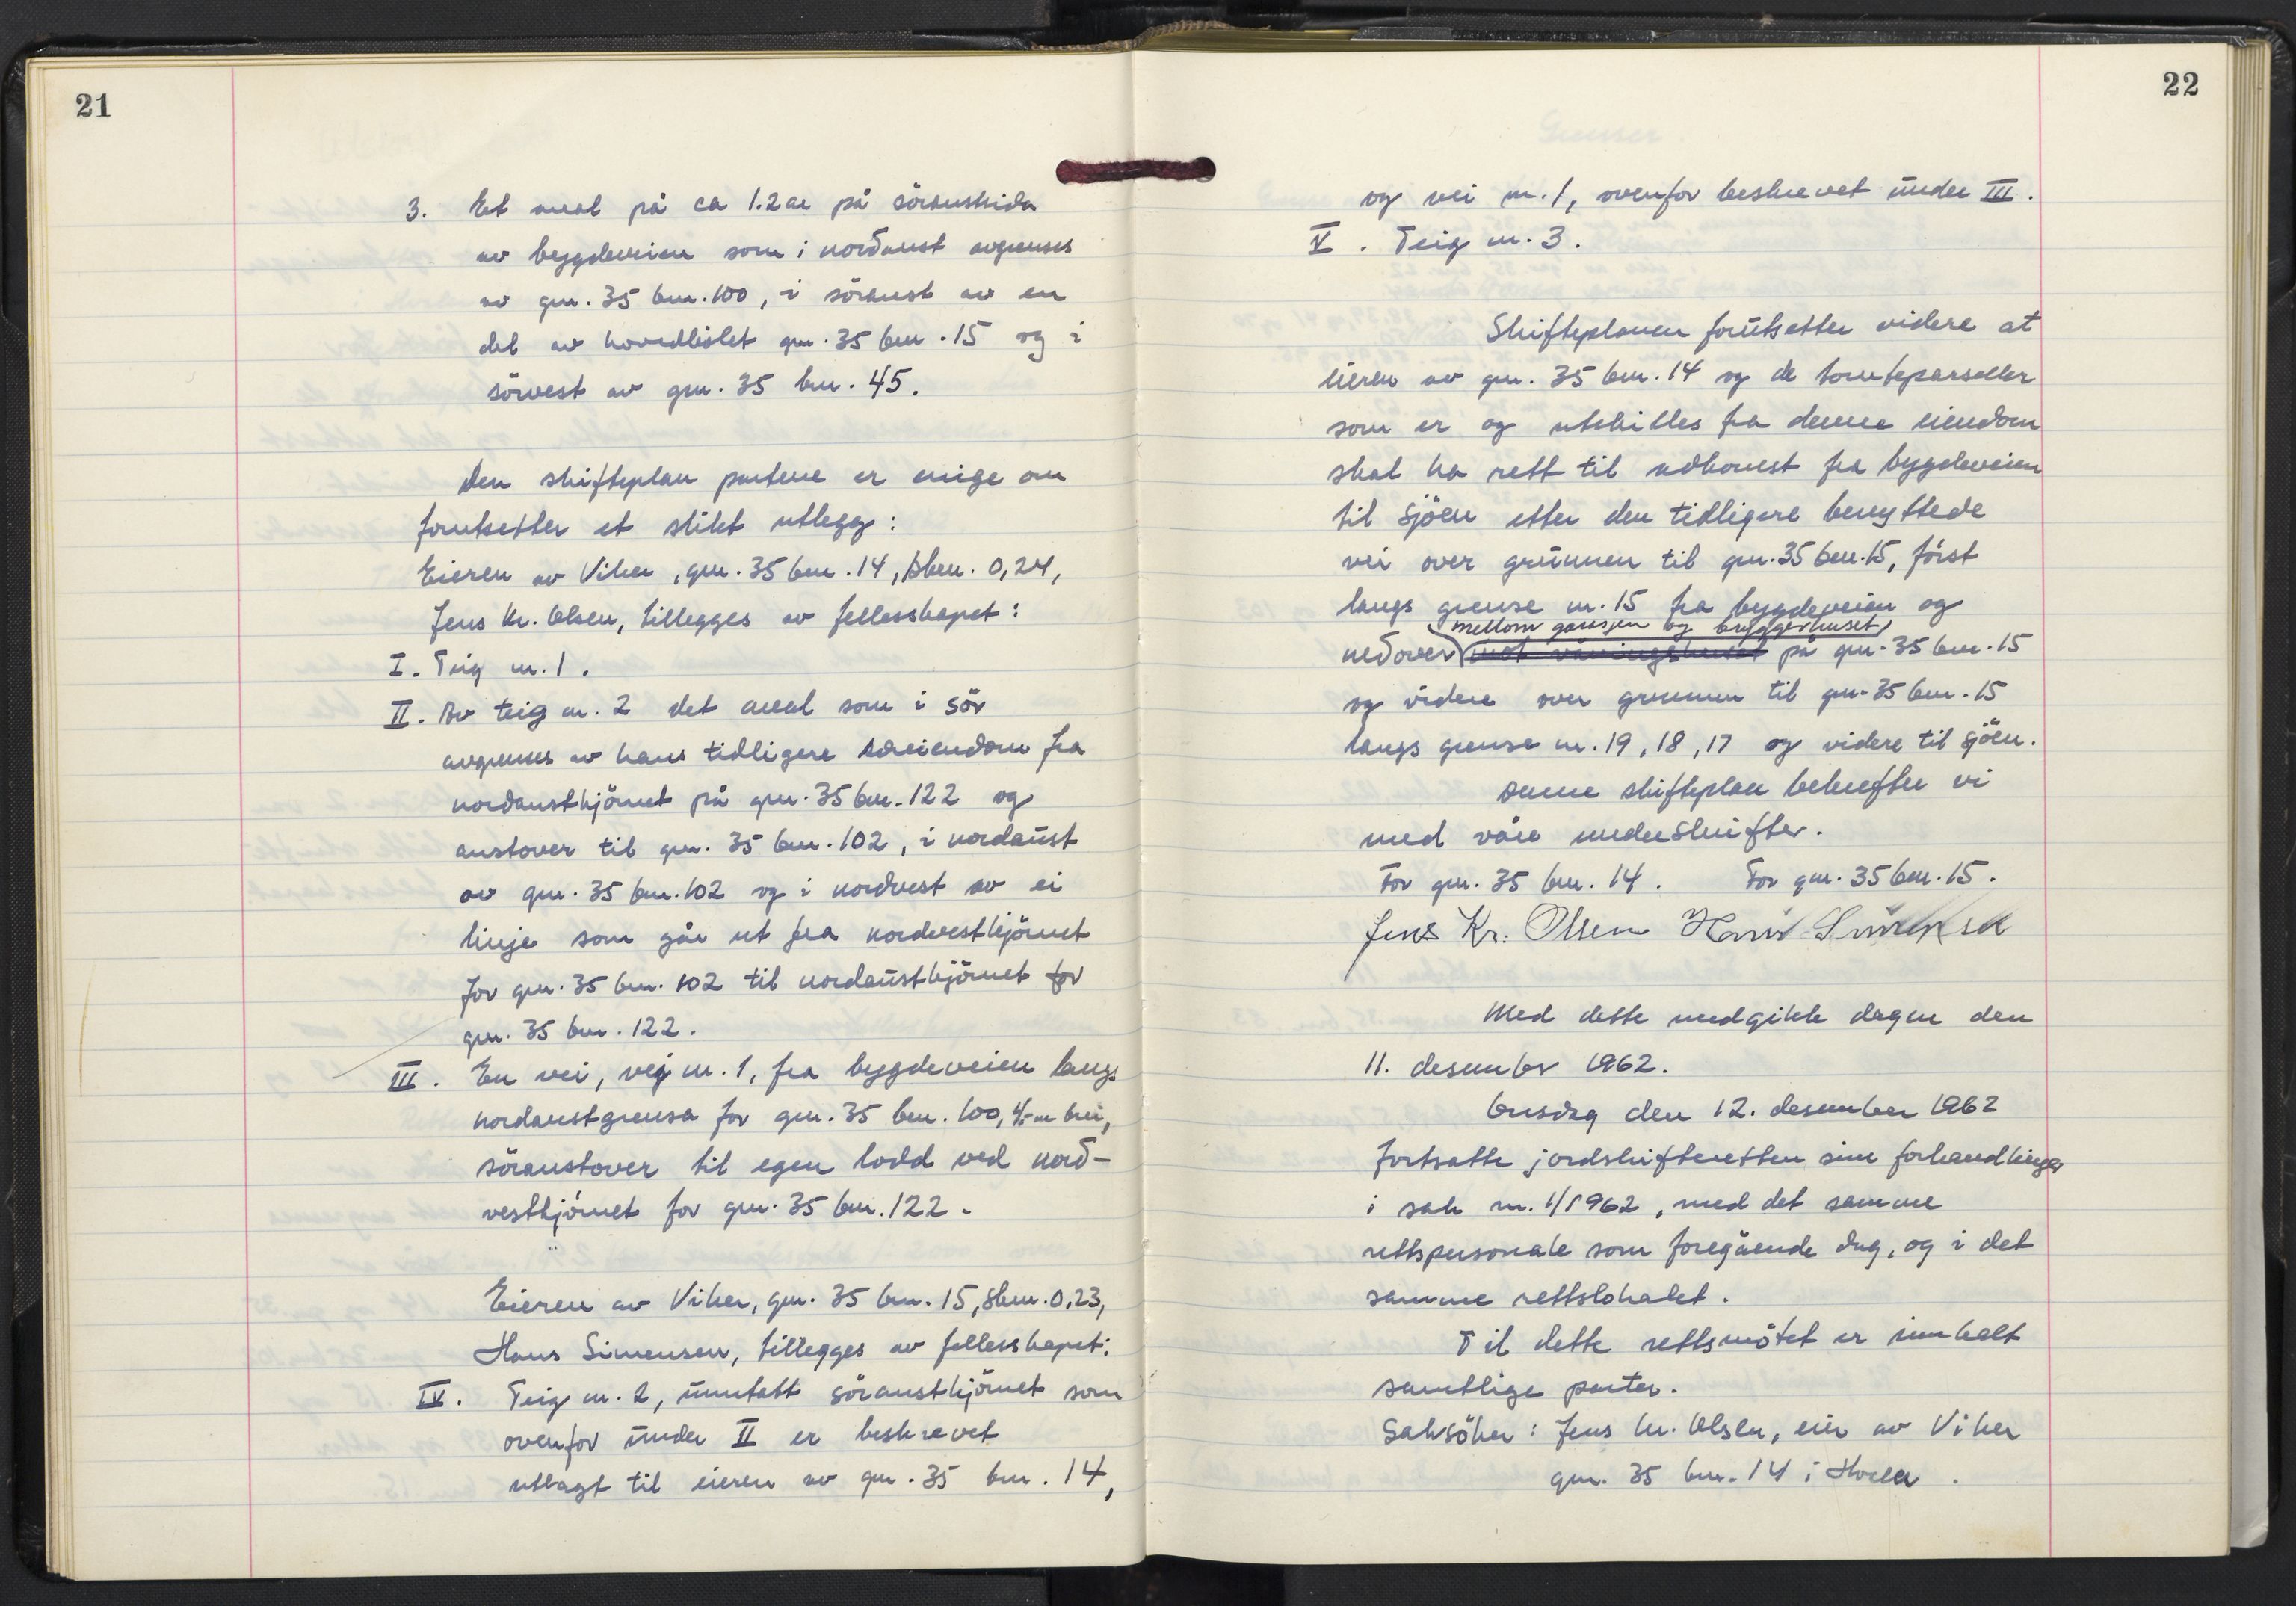 21
3. Et areal på ca 1.2 ar på söraustsida
av bygdeveien som i nordaust avgrenses
av gnr. 35 bnr. 100, i söraust av en
del av hovedbölet gnr. 35 bnr. 15 og i
sörvest av gnr. 35 bnr. 45.
Den skifteplan partene er enige om
forutsetter et slikt utlegg:
Eieren av Viker, gnr. 35 bnr. 14, skm. 0,24,
Jens Kr. Olsen, tillegges av fellesskapet:
I. Teig nr. 1.
II. Av teig nr. 2 det areal som i sör
avgrenses av hans tidligere særeiendom fra
nordausthjörnet på gnr. 35 bnr. 122 og
austover til gnr. 35 bnr. 102, i nordaust
av gnr. 35 bnr. 102 og i nordvest av ei
linje som går ut fra nordvesthjörnet
for gnr. 35 bnr. 102 til nordausthjörnet for
gnr. 35 bnr. 122.
III. En vei, vei nr. 1, fra bygdeveien langs
nordaustgrensa for gnr. 35 bnr. 100, 4,-m brei,
söraustover til egen lodd ved nord-
vesthjörnet for gnr. 35 bnr. 122.
Eieren av Viker, gnr. 35 bnr. 15, skm. 0,23,
Hans Simensen, tillegges av fellesskapet:
IV. Teig nr. 2, unntatt sörausthjörnet som
ovenfor under II er beskrevet
utlagt til eieren av gnr. 35 bnr. 14,
22
og vei nr. 1, ovenfor beskrevet under III.
V. Teig nr. 3.
Skifteplanen forutsetter videre at
eieren av gnr. 35 bnr. 14 og de tomteparseller
som er og utskilles fra denne eiendom
skal ha rett til adkomst fra bygdeveien
til sjöen etter den tidligere benyttede
vei over grunnen til gnr. 35 bnr. 15, först
langs grense nr. 15 fra bygdeveien og
mellom garasjen og bryggerhuset
nedover mot våningshuset på gnr. 35 bnr. 15
og videre over grunnen til gnr. 35 bnr. 15
langs grense nr. 19, 18, 17 og videre til sjöen.
Denne skifteplan bekrefter vi
med våre underskrifter.
For gnr. 35 bnr. 14. For gnr. 35 bnr. 15.
Jens Kr. Olsen Hans Simensen
Med dette medgikk dagen den
11. desember 1962.
Onsdag den 12. desember 1962
fortsatte jordskifteretten sine forhandlinger
i sak nr. 1/1962, med det samme
rettspersonale som foregående dag, og i det
samme rettslokalet.
Til dette rettsmötet er innkalt
samtlige parter.
Saksöker: Jens Kr. Olsen, eier av Viker
gnr. 35 bnr. 14 i Hvaler.